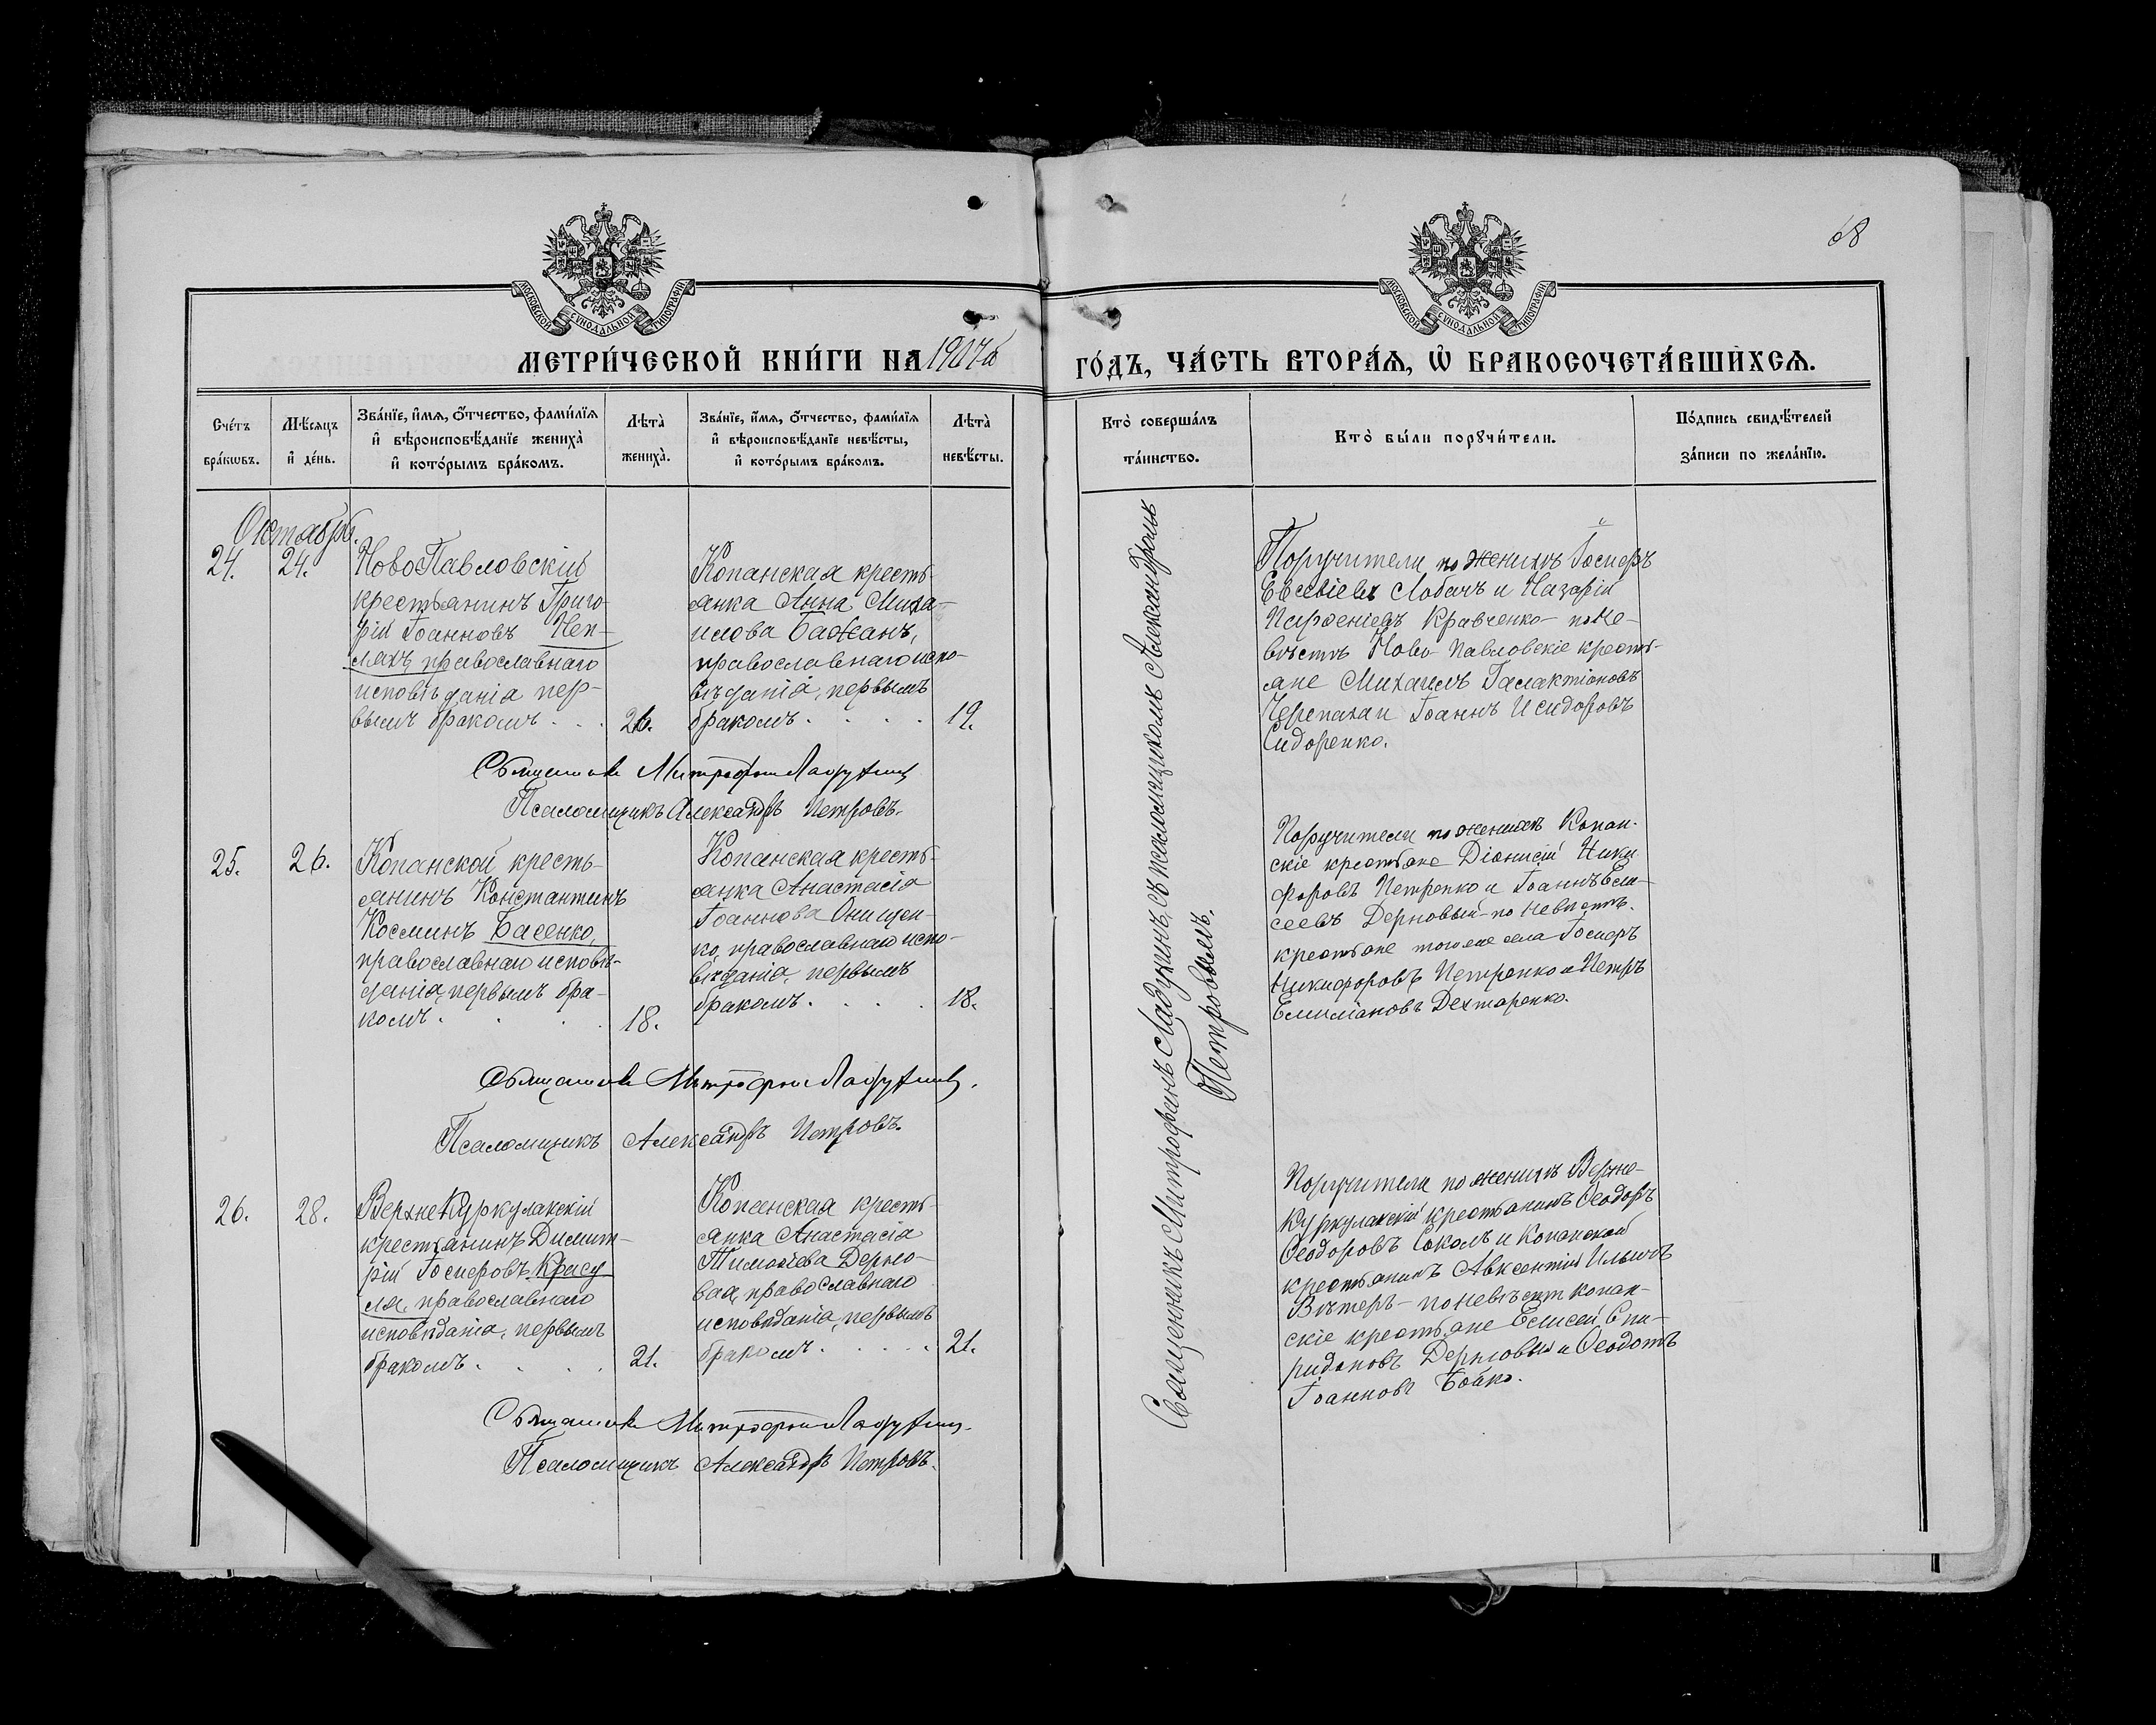 68
МОСКОВСКОЙ СУНОДАЛЬНОЙ ТИПОГРАФІИ
МОСКОВСКОЙ СУНОДАЛЬНОЙ ТИПОГРАФІИ
МЕТРИ́ЧЕСКОЙ КНИ́ГИ НА 1907й
ГО́ДЪ, ЧА́СТЬ ВТОРА́Я, Ѡ БРАКОСОЧЕТА́ВШИХСЯ.
Сче́тъ
бра́кѡвъ.
Мѣ́сяцъ
и҆ де́нь.
Зва́нїе, и҆́мѧ, ѻ҆́тчество, фами́лїѧ
и҆ вѣроисповѣ́данїе жениха̀
и҆ кото́рымъ бра́комъ.
Лѣ́та̀
жениха̀.
Зва́нїе, и҆́мѧ, ѻ҆́тчество, фами́лїѧ
и҆ вѣроисповѣ́данїе невѣ́сты,
и҆ кото́рымъ бра́комъ.
Лѣ́та̀
невѣ́сты.
Кто̀ соверша́лъ
та́инство.
Кто̀ бы́ли порꙋчи́тели.
По́дпись свидѣ́телей
за́писи по жела́нїю.
Октябрь.
24.
24.
НовоПавловскій
крестьянинъ Григо-
рій Іоанновъ Неп-
ляхъ, православнаго
исповѣданія пер-
вымъ бракомъ . . .
26.
Копанская кресть-
янка Анна Миха-
илова Бажанъ,
православнаго испо-
вѣданія, первымъ
бракомъ . . . .
19.
Поручители по женихѣ Іосифъ
Евсевіевъ Лобачъ и Назарій
Парѳеніевъ Кравченко - по не-
вѣстѣ Ново-Павловскіе кресть-
яне Михаилъ Галактіоновъ
Черепаха и Іоаннъ Исидоровъ
Сидоренко.
Священникъ Митрофанъ Ладухинъ
Псаломщикъ Александръ Петровъ.
25.
26.
Копанской кресть-
янинъ Константинъ
Косминъ Басенко,
православнаго исповѣ-
данія, первымъ бра-
комъ . . . .
18.
Копанская кресть-
янка Анастасія
Іоаннова Онищен-
ко, православнаго испо-
вѣданія, первымъ
бракомъ . . . .
18.
Поручители по женихѣ Копан-
скіе крестьяне Діонисій Ники-
форовъ Петренко и Іоаннъ Ели-
сеевъ Дерновый - по невѣстѣ
крестьяне того же села Іосифъ
Никифоровъ Петренко и Петръ
Емиліановъ Дехтаренко.
Священникъ Митрофанъ Ладухинъ.
Псаломщикъ Александръ Петровъ.
26.
28.
ВерхнеКуркулакскій
крестьянинъ Димит-
рій Іосифовъ Красу
ля, православнаго
исповѣданія, первымъ
бракомъ . . . .
21.
Копанская кресть-
янка Анастасія
Тимоѳеева Дерно-
вая, православнаго
исповѣданія, первымъ
бракомъ . . . . .
21.
Поручители по женихѣ Верхне-
Куркулакскій крестьянинъ Ѳеодоръ
Ѳеодоровъ Соколъ и Копанской
крестьянинъ Авксентій Ильичъ
Вѣтеръ - по невѣстѣ копан-
скіе крестьяне Елисей Спи-
ридоновъ Дерновый и Ѳеодотъ
Іоанновъ Бойко.
Священникъ Митрофанъ Ладухинъ.
Псаломщикъ Александръ Петровъ.
Священникъ Митрофанъ Ладухинъ, съ псаломщикомъ Александромъ
Петровымъ.